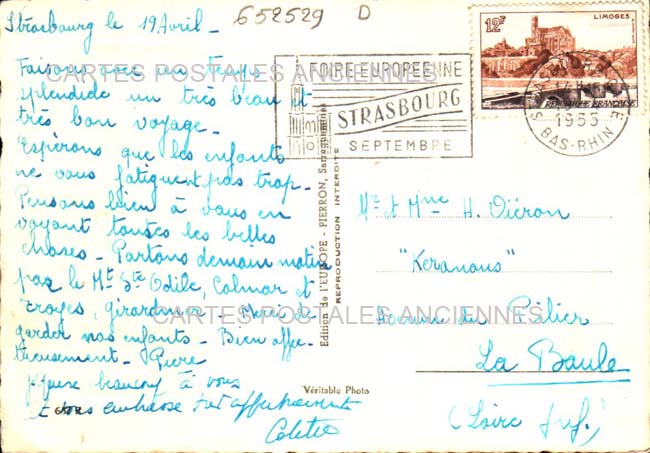 Strasbourg le 19 Avril -
652529 D
Faisons avec un temps
splendide un très beau et
très bon voyage -
Espérons que les enfants
ne vous fatiguent pas trop -
Pensons bien à vous en
voyant toutes les belles
choses - Partons demain matin
par le Mt Ste Odile, Colmar et
Troyes, Girardmer - Merci de
garder nos enfants - Bien affec-
tueusement - Pierre
pense beaucoup à vous
et vous embrasse très affectueusement
Colette
FOIRE EUROPEENNE
STRASBOURG
SEPTEMBRE
12F
LIMOGES
REPUBLIQUE FRANÇAISE
1955
BAS-RHIN
CARTES POSTALES ANCIENNES
Edition de l'EUROPE - PIERRON, Sarreguemines
REPRODUCTION INTERDITE
Mr et Mme H. Diéron
"Keranous"
Avenue du Pilier
CARTES POSTALES ANCIENNES
La Baule
(Loire Inf.)
Véritable Photo